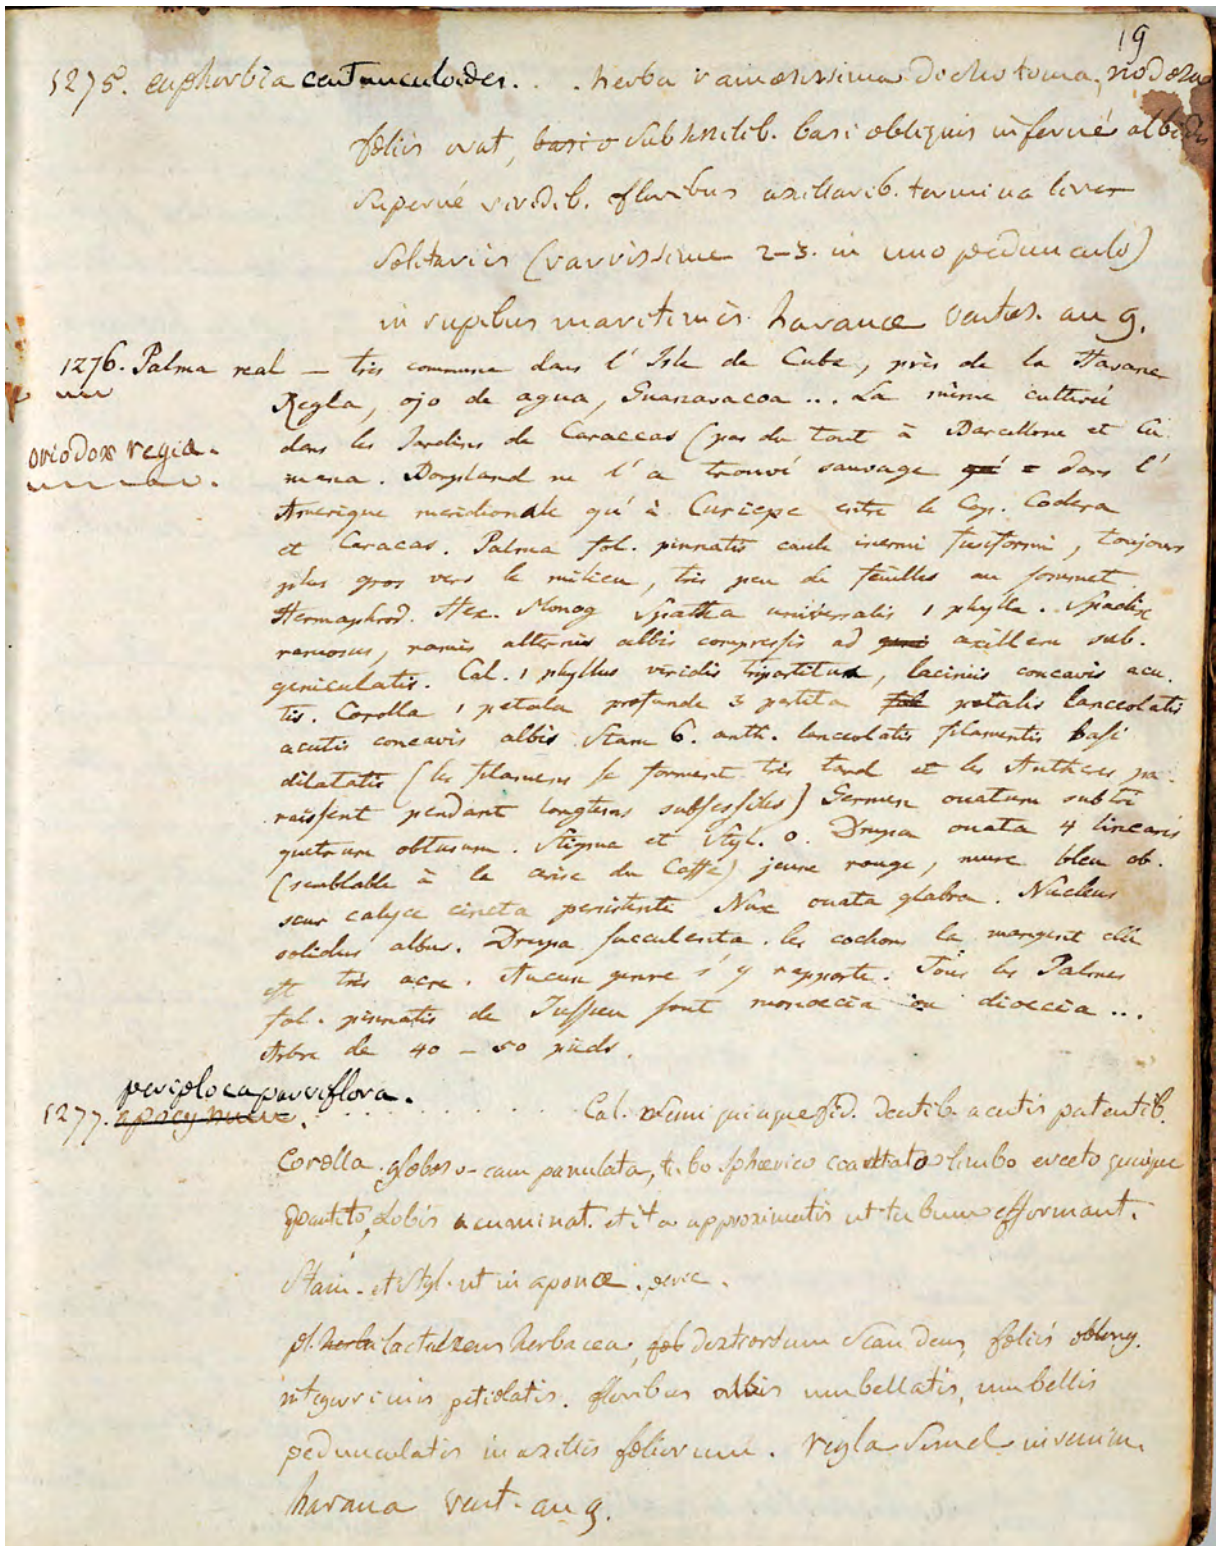 19
1275. euphorbia centunculoides. . . herba ramosissima dichotoma, nodosa
foliis ovat, basi o subsessilib. basi obliquis inferné albidis
superné viridib. floribus axillarib. terminalib
solitariis (rarissime 2-3. in uno pedunculo)
in rupibus maritimis havanae ventos. an g.
1276. Palma real — très commune dans l' Isle de Cuba, près de la Havane
Regla, ojo de agua, Guanavacoa ... La même cultivé
oriodox regia.
dans les Jardins de Caraccas (pas du tout à Barcellone et Cu
mana. Bonpland ne l' a trouvé sauvage qu' = dans l'
Amerique meridionale qu' à Curiepe entre le Cap. Codera
et Caracas. Palma fol. pinnatis caule inermi fusiformi, toujours
plus gros vers le milieu, très peu de feuilles au sommet
Hermaphrod. Hex. Monog Spatha universalis 1 phylla. Spadix
ramosus, ramis alternis albis compressis ad axillem sub.
geniculatis. Cal. 1 phyllus viridis tripartitus, laciniis concavis acu.
tis. Corolla 1 petala profunde 3 partita fol petalis lanceolatis
acutis concavis albis Stam 6. anth. lanceolatis filamentis basi
dilatatis (les filamens se forment très tard et les Antheres pa.
raissent pendant longtems subsessiles) Germen ovatum subtri
quetrum obtusum. Stigma et Styl. 0. Drupa ovata 4 linearis
(semblable à la cerise du Caffe) jeune rouge, mure bleu ob.
scur calyce cincta persistente Nux ovata glabra. Nucleus
solidus albus. Drupa succulenta. les cochons la mangent elle
est très acre. Aucun genre s' y rapporte. Tous les Palmes
fol. pinnatis de Jussieu sont monoecia ou dioecia ...
Arbre de 40 — 50 pieds.
periploca parviflora.
1277. apocynum. . . . . . . . . . Cal. semi quinquefid. dentib. acutis patentib.
Corolla globoso-campanulata, tubo sphaerico coarctato limbo erecto quinque
partito, Lobis acuminat. et ita approximatis ut tubum efformant.
Stam. et Styl. ut in apocæ.
pl. herba lactescens herbacea, fol dextrorsum scandens, foliis oblong.
integerrimis petiolatis. floribus albis umbellatis, umbellis
pedunculatis in axillis foliorum. regla semel invenim.
havana vent. an g.